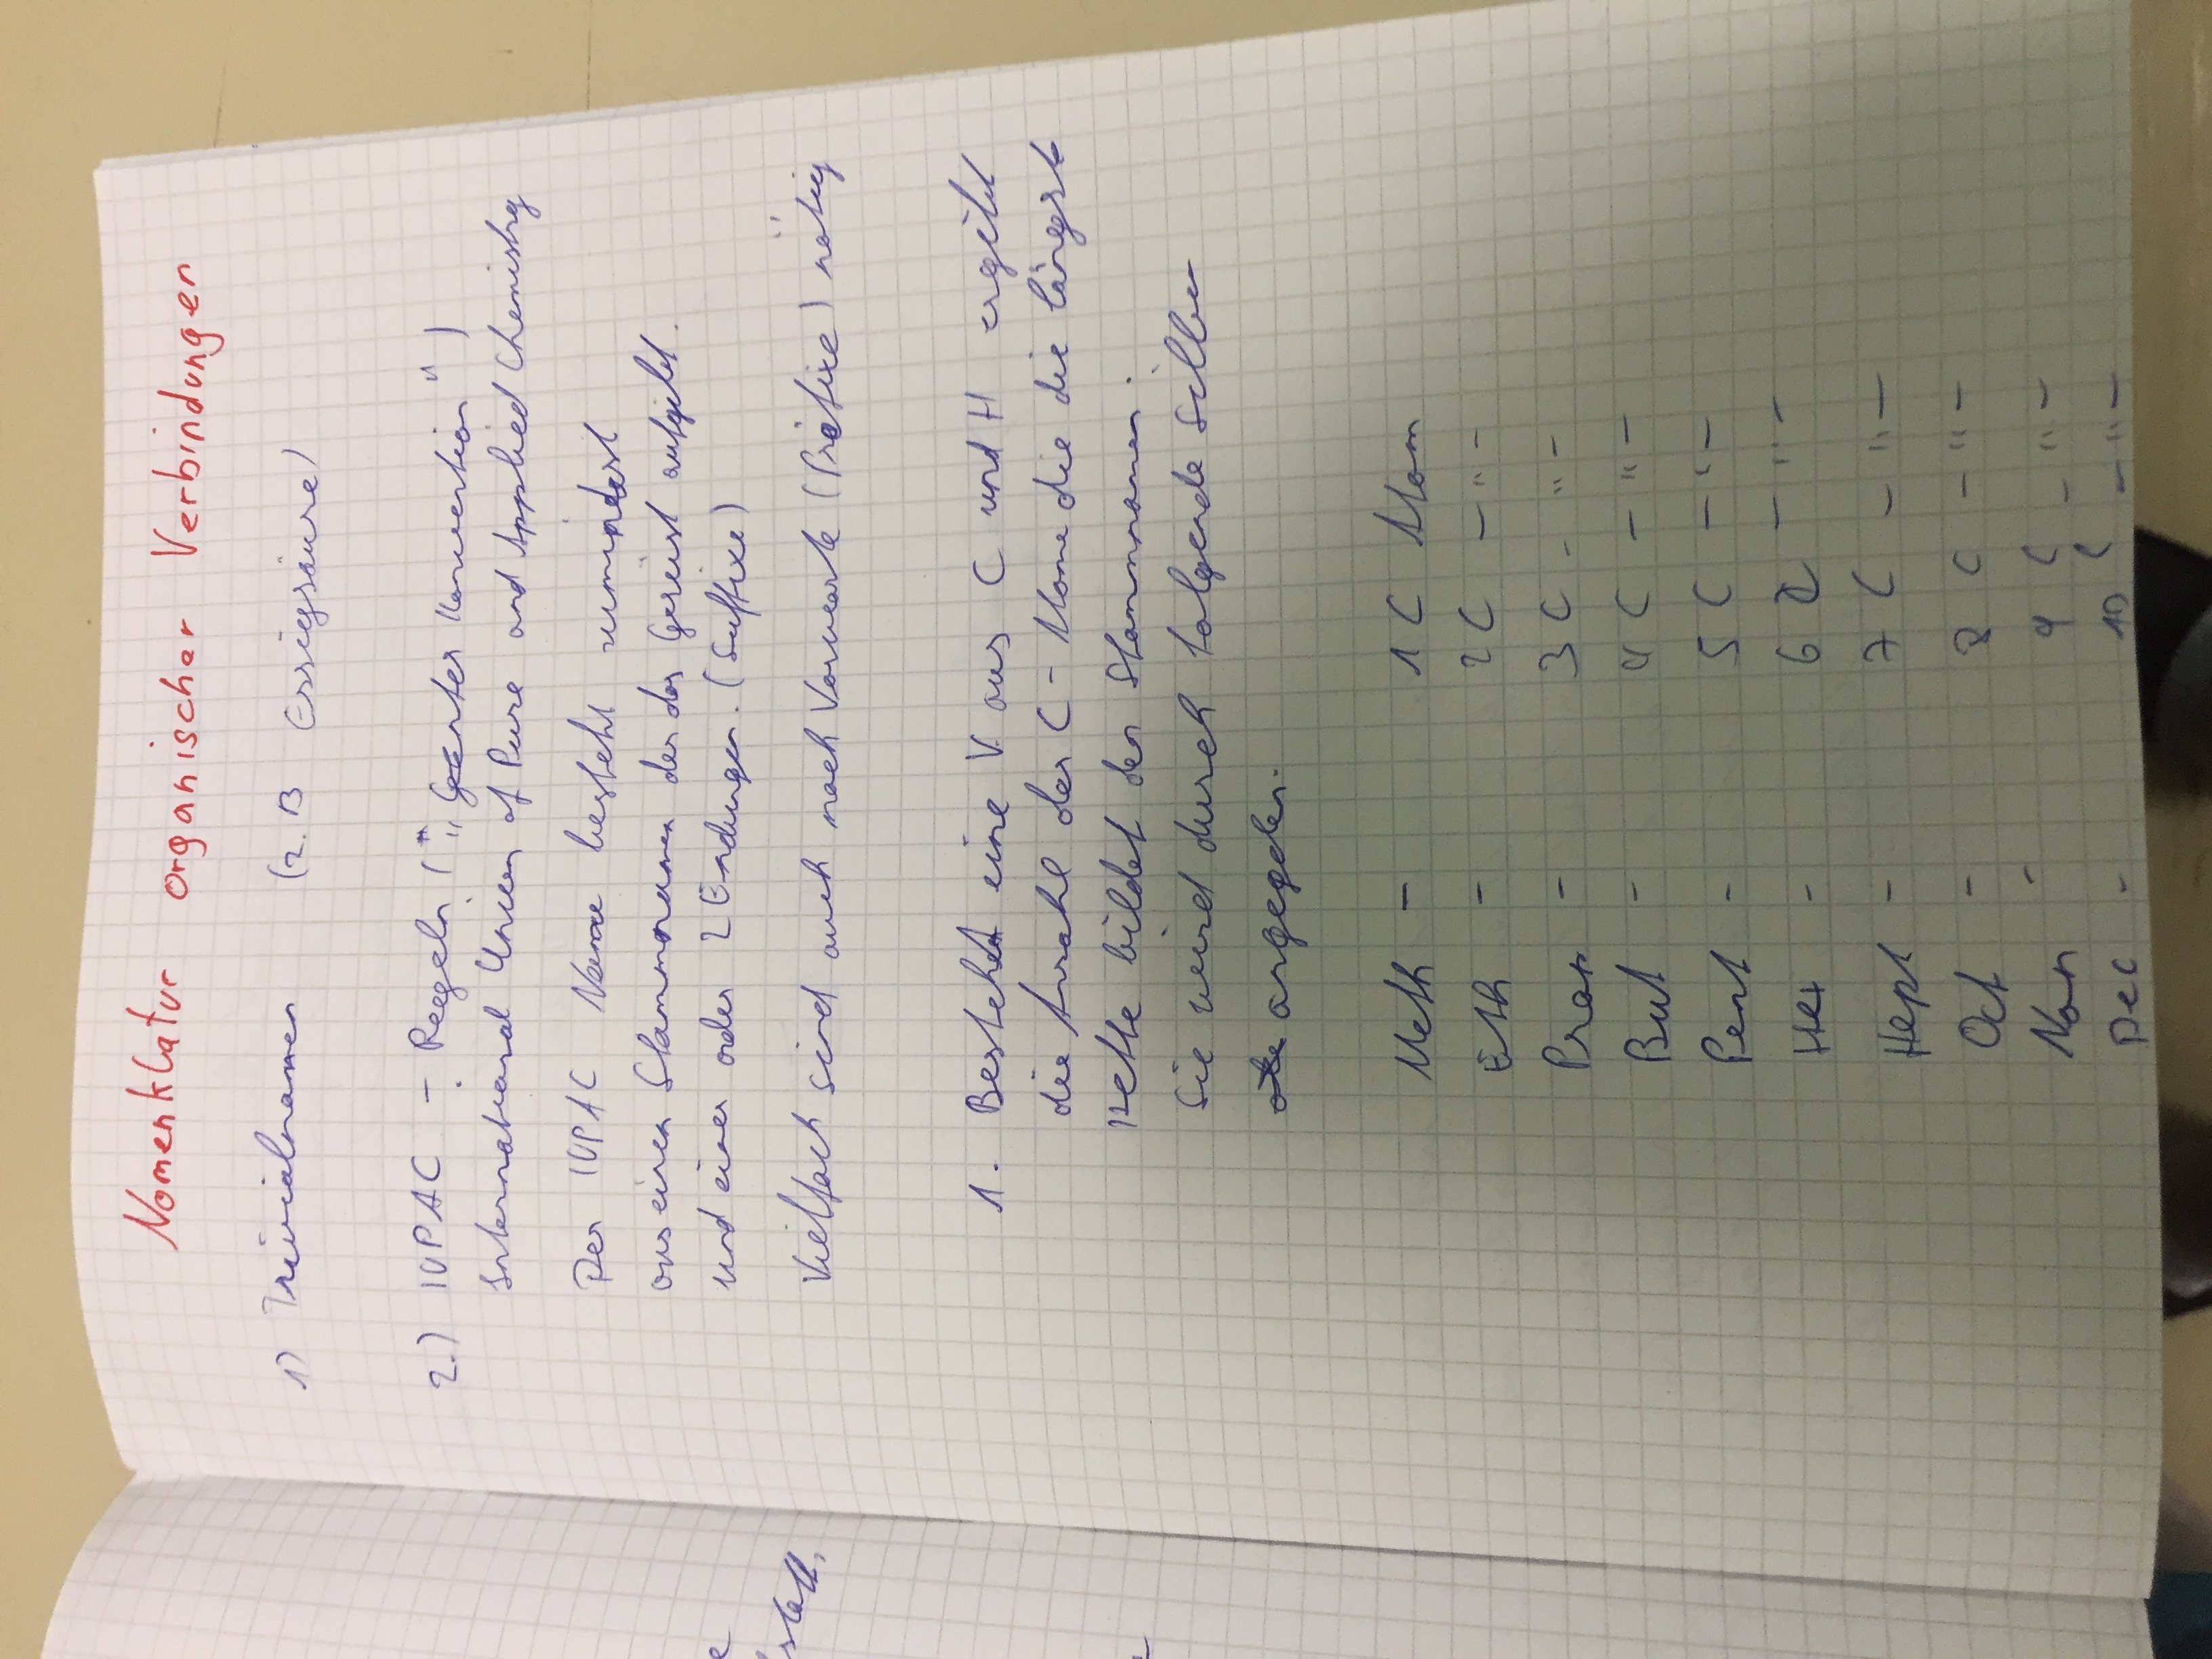 Nomenklatur organischer Verbindungen
1) Trivialnamen (z.B Essigsäure)
2.) IUPAC - Regeln („Genfer Konvention")
International Union of Pure and Applied Chemistry
Der IUPAC Name besteht zumindest
aus einen Stammnamen der das Gerüst aufgibt.
und einer oder 2 Endungen. (Suffixe)
Vielfach sind auch noch Vorworte (Präfixe) nötig
1. Besteht eine V. aus C und H ergibt
die Anzahl der C - Atome die die längste
Kette bildet den Stammnamen.
Sie wird durch folgende Silben
angegeben.
Meth - 1 C Atom
Eth - 2 C - " -
Prop - 3 C - " -
But - 4 C - " -
Pent - 5 C - " -
Hex - 6 C - " -
Hept - 7 C - " -
Oct - 8 C - " -
Non - 9 C - " -
Dec - 10 C - " -